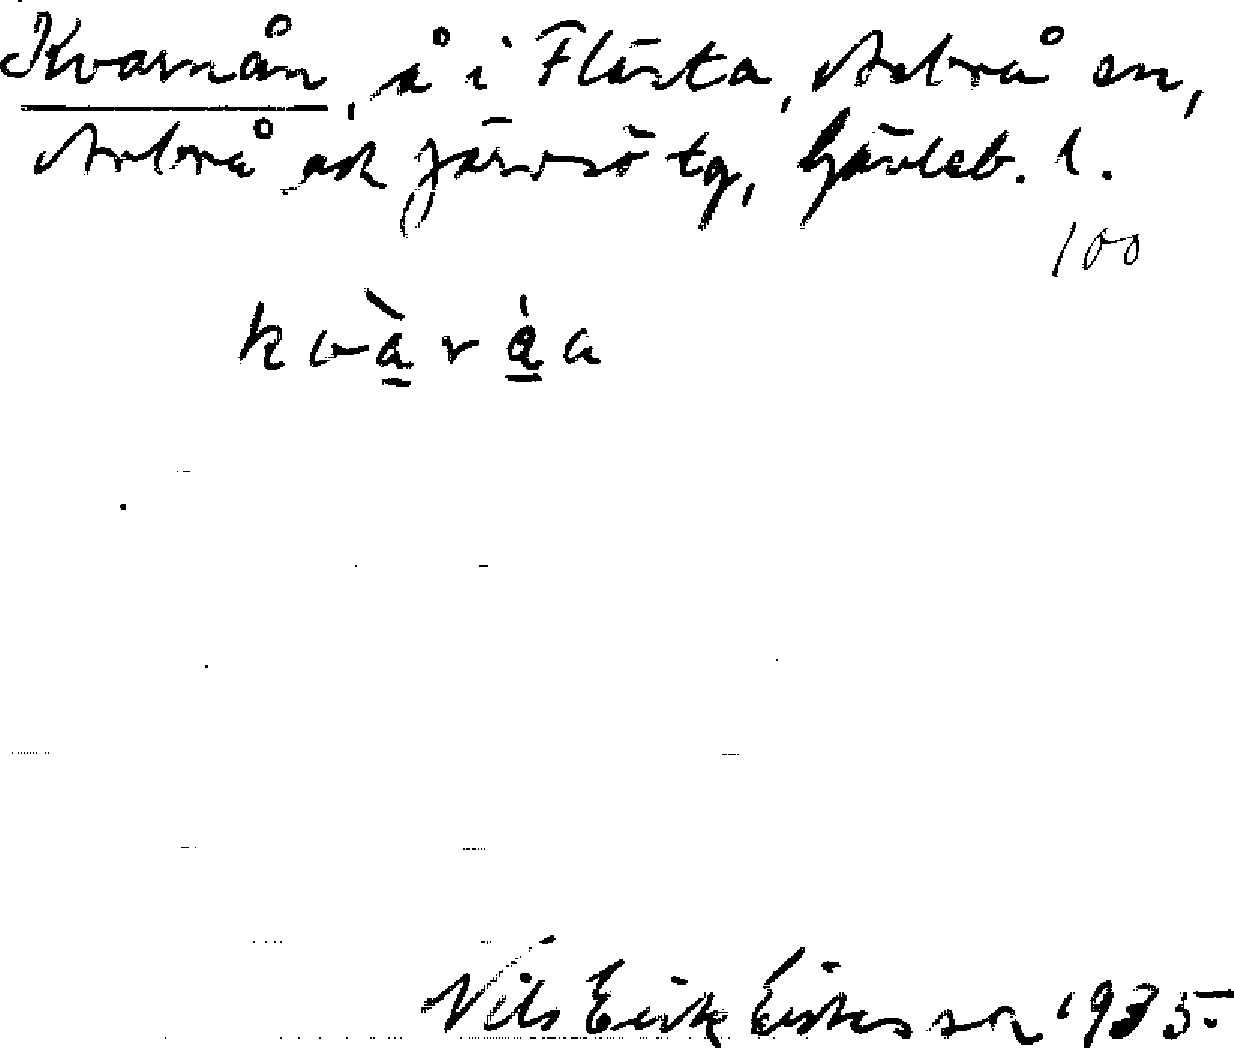 Kvarnån, å i Flästa, Arbrå sn,
Arbrå och Järvsö tg, Gävleb. l.
100
kvàråa
Nils Erik Eriksson 1935.